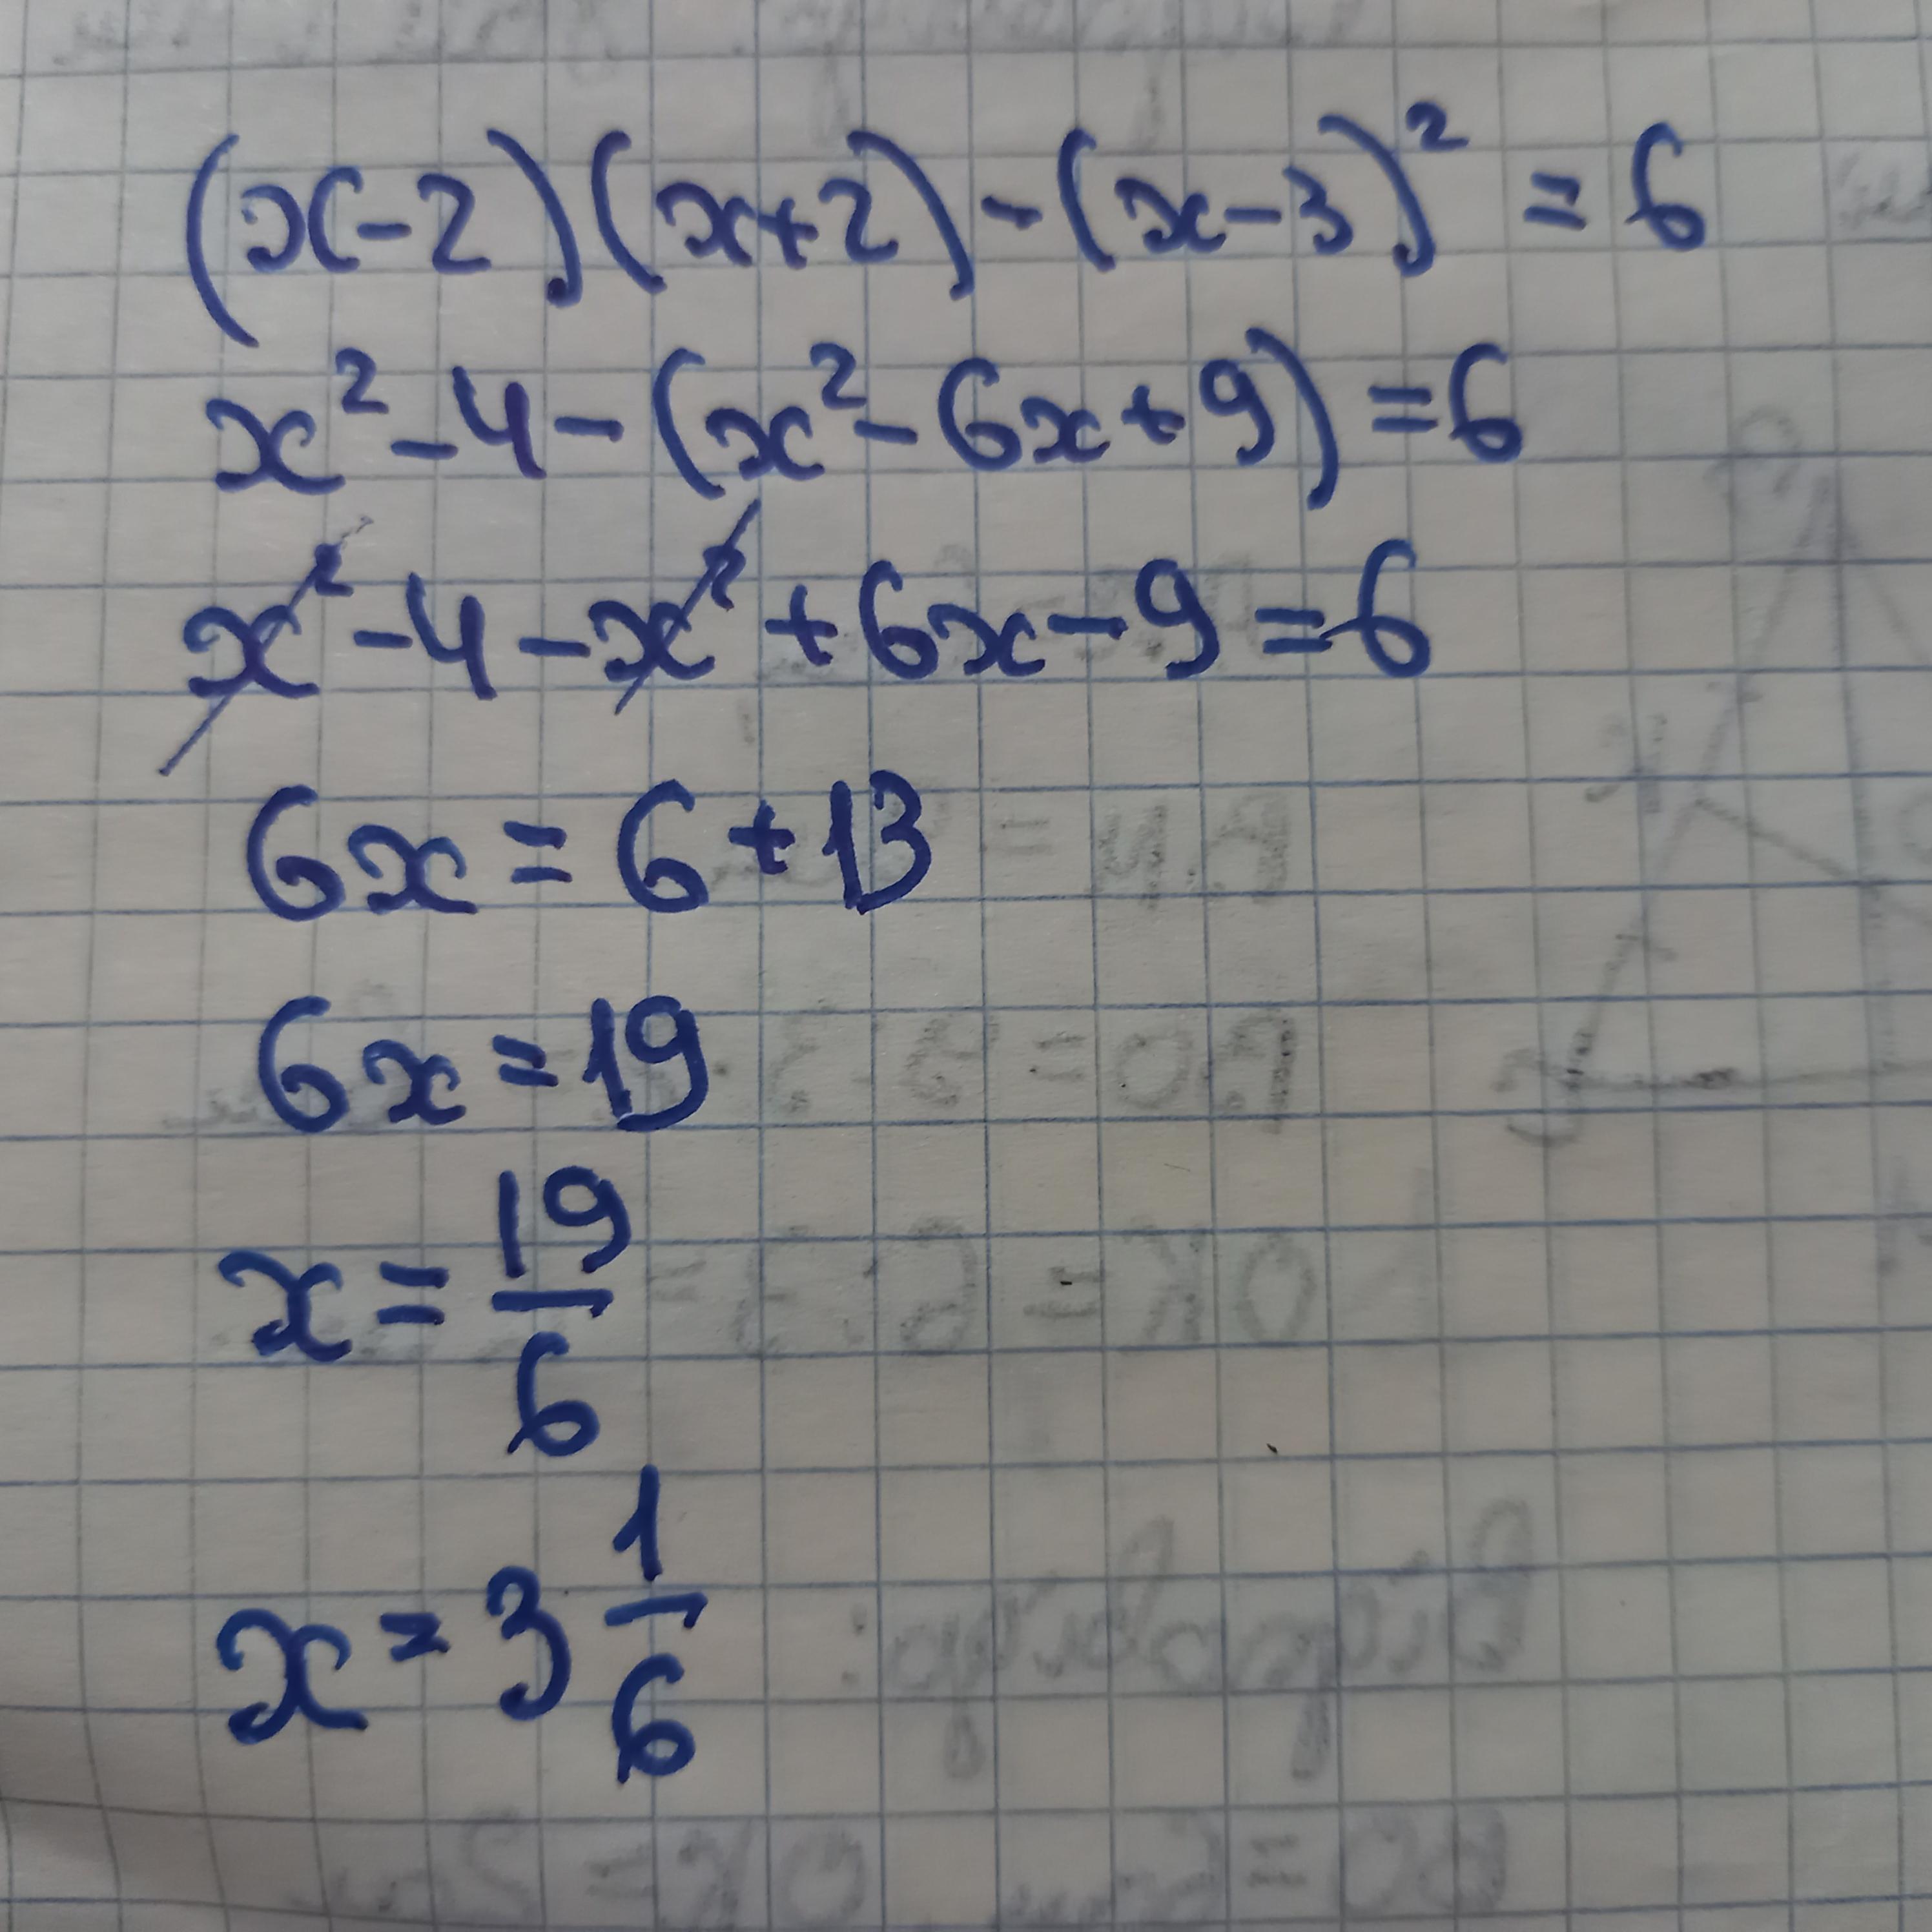 (x-2)(x+2)-(x-3)² = 6
x²-4-(x²-6x+9)=6
x²-4-x²+6x-9=6
6x = 6+13
6x=19
x= 19/6
x= 3 1/6